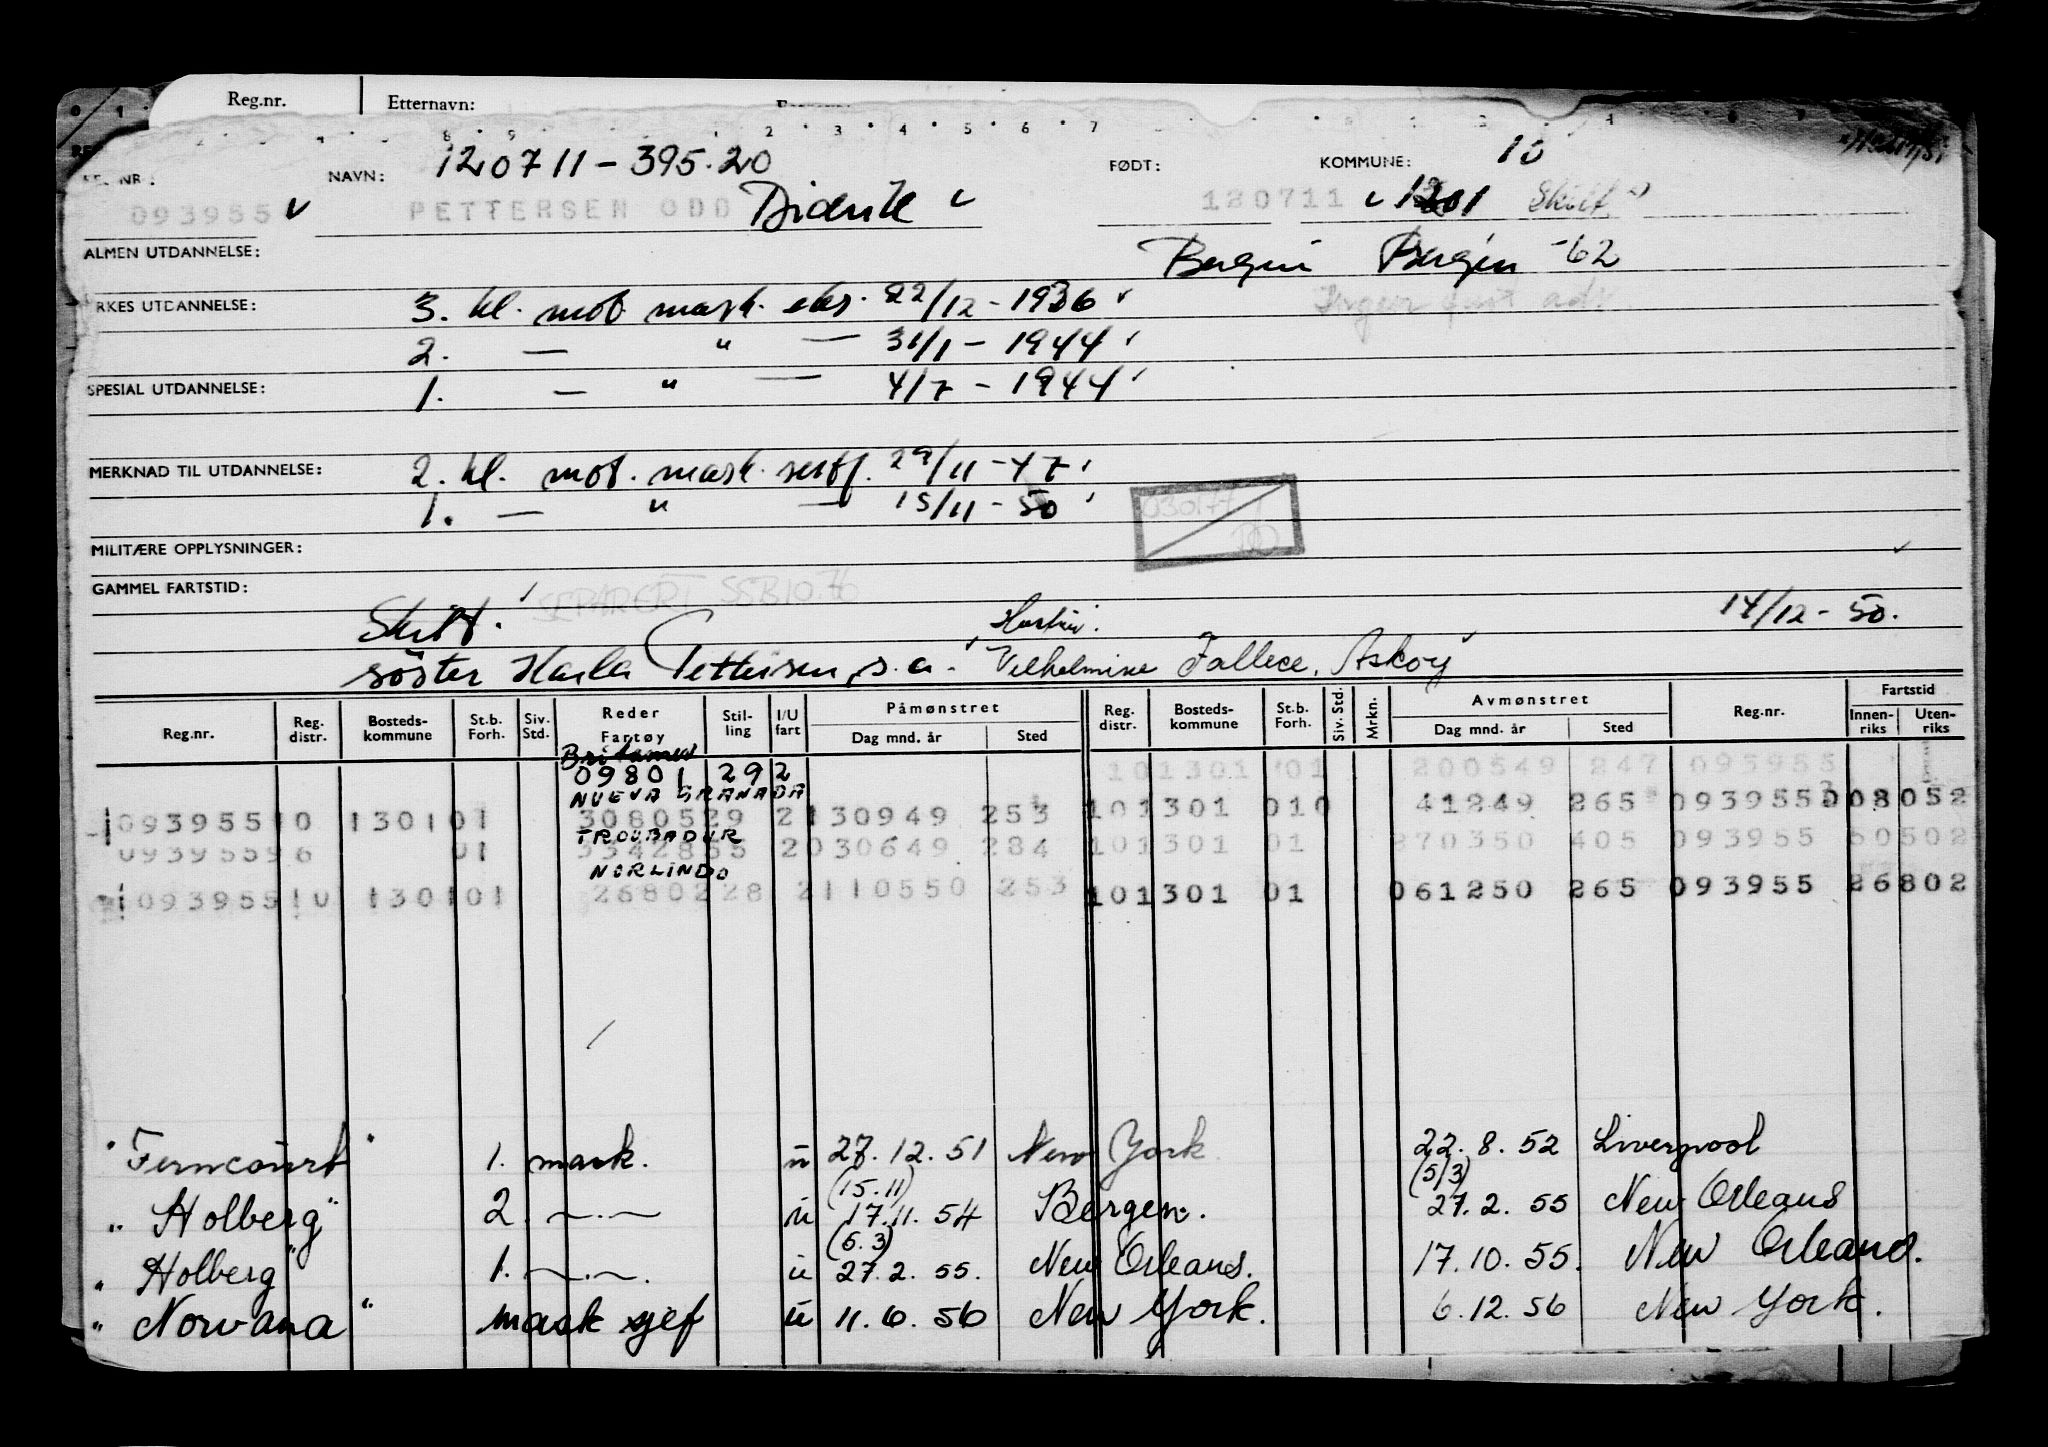 Reg.nr. Etternavn:
8 9 2 3 4 5 6 7
120711-395.20 10
NAVN: FØDT: KOMMUNE:
093955 PETTERSEN ODD Diderik 120711 1301 Skilt
ALMEN UTDANNELSE: Bergen Bergen -62
RKES UTDANNELSE: 3. kl. mot. mask. eks. 22/12-1936
2. — " — 31/1-1944
SPESIAL UTDANNELSE: 1. — " — 4/7-1944
MERKNAD TIL UTDANNELSE: 2. kl. mot. mask. sertf. 29/11-47
1. — " — 15/11-50
030177
MILITÆRE OPPLYSNINGER:
GAMMEL FARTSTID:
SEPARERT SSB10.76
Skilt. Hustru. 14/12-50.
søster Karla Pettersen, s.a. Vilhelmine Askøy
Reg.nr. Reg. distr. Bosteds-kommune St.b. Forh. Siv. Std. Reder Fartøy Stil-ling I/U fart Påmønstret Dag mnd. år Sted Reg. distr. Bosteds-kommune St.b. Forh. Siv. Std. Mrkn. Avmønstret Dag mnd. år Sted Reg.nr. Fartstid Innen-riks Uten-riks
Britamer
09801 292 101301 01 200549 247 093955
NUEVA GRANADA
093955 10 1301 01 3080529 2 130949 253 101301 010 41249 265 093955 008052
TROUBADUR
093955 96 01 3342855 2 030649 284 101301 01 270350 405 093955 50502
NORLINDO
093955 10 1301 01 2680228 2 110550 253 101301 01 061250 265 093955 26802
"Ferncourt" 1. mask. u 27.12.51 New York 22.8.52 Liverpool
(15.11) (5/3)
"Holberg" 2. —.— u 17.11.54 Bergen. 27.2.55 New Orleans
(6.3)
"Holberg" 1. —.—. u 27.2.55. New Orleans. 17.10.55. New Orleans.
"Norvana" mask sjef u 11.6.56 New York. 6.12.56 New York.